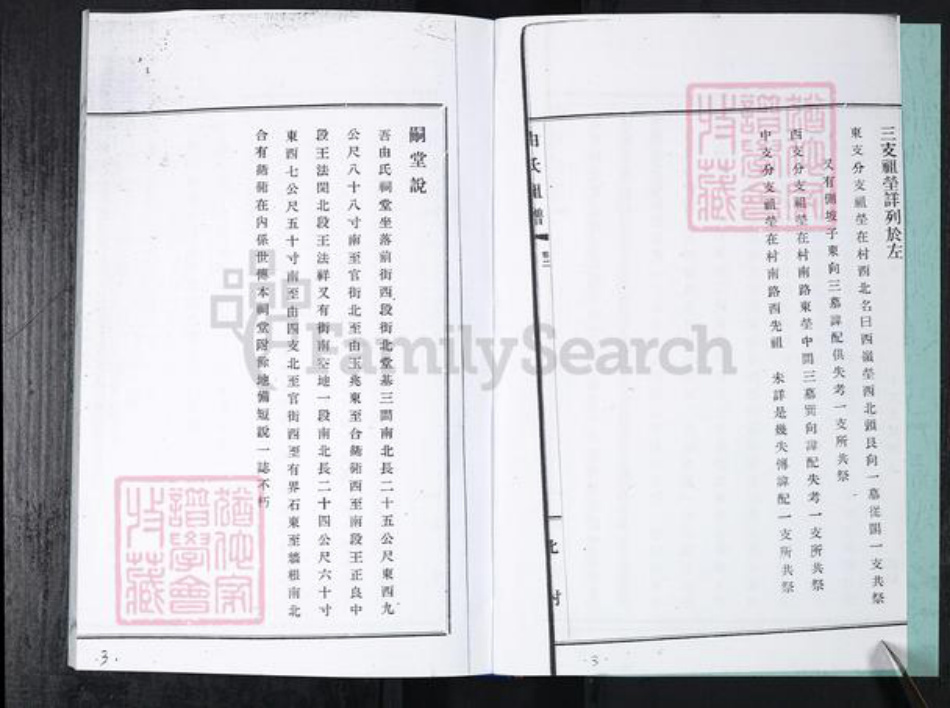 三支祖塋詳列於左
東支分支祖塋在村西北名曰西嶺塋西北頭艮向一墓從賜一支共祭
又有 坡子東向三墓諱配俱失考一支所共祭
西支分支祖塋在村南路東塋中間三墓巽向諱配失考一支所共祭
中支分支祖塋在村南路西先祖 未詳是幾失傳諱配一支所共祭
由氏祖譜 卷二
北 村
3
嗣堂說
吾由氏祠堂坐落前街西段街北堂基三間南北長二十五公尺東西九
公尺八十八寸南至官街北至由玉兆東至合 衚西至南段王正良中
段王法閔北段王法祥又有街南空地一段南北長二十四公尺六十寸
東西七公尺五十寸南至由四支北至官街西至有界石東至牆根南北
合有 衚在內係世傳本祠堂附餘地備短說一誌不朽
3
FamilySearch